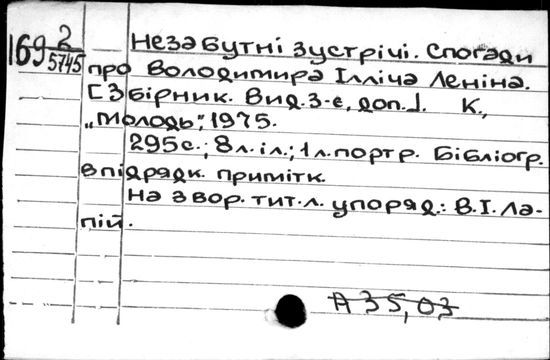 169 2/5745
Незабутні зустрічі. Спогади
про Володимира Ілліча Леніна.
[Збірник. Вид. 3-є, доп.]. К.,
„Молодь", 1975.
295 с.; 8 л. іл.; 1 л. портр. Бібліогр.
в підрядк. примітк.
На звор. тит. л. упоряд.: В. І. Ла-
пій.
А 35, 03